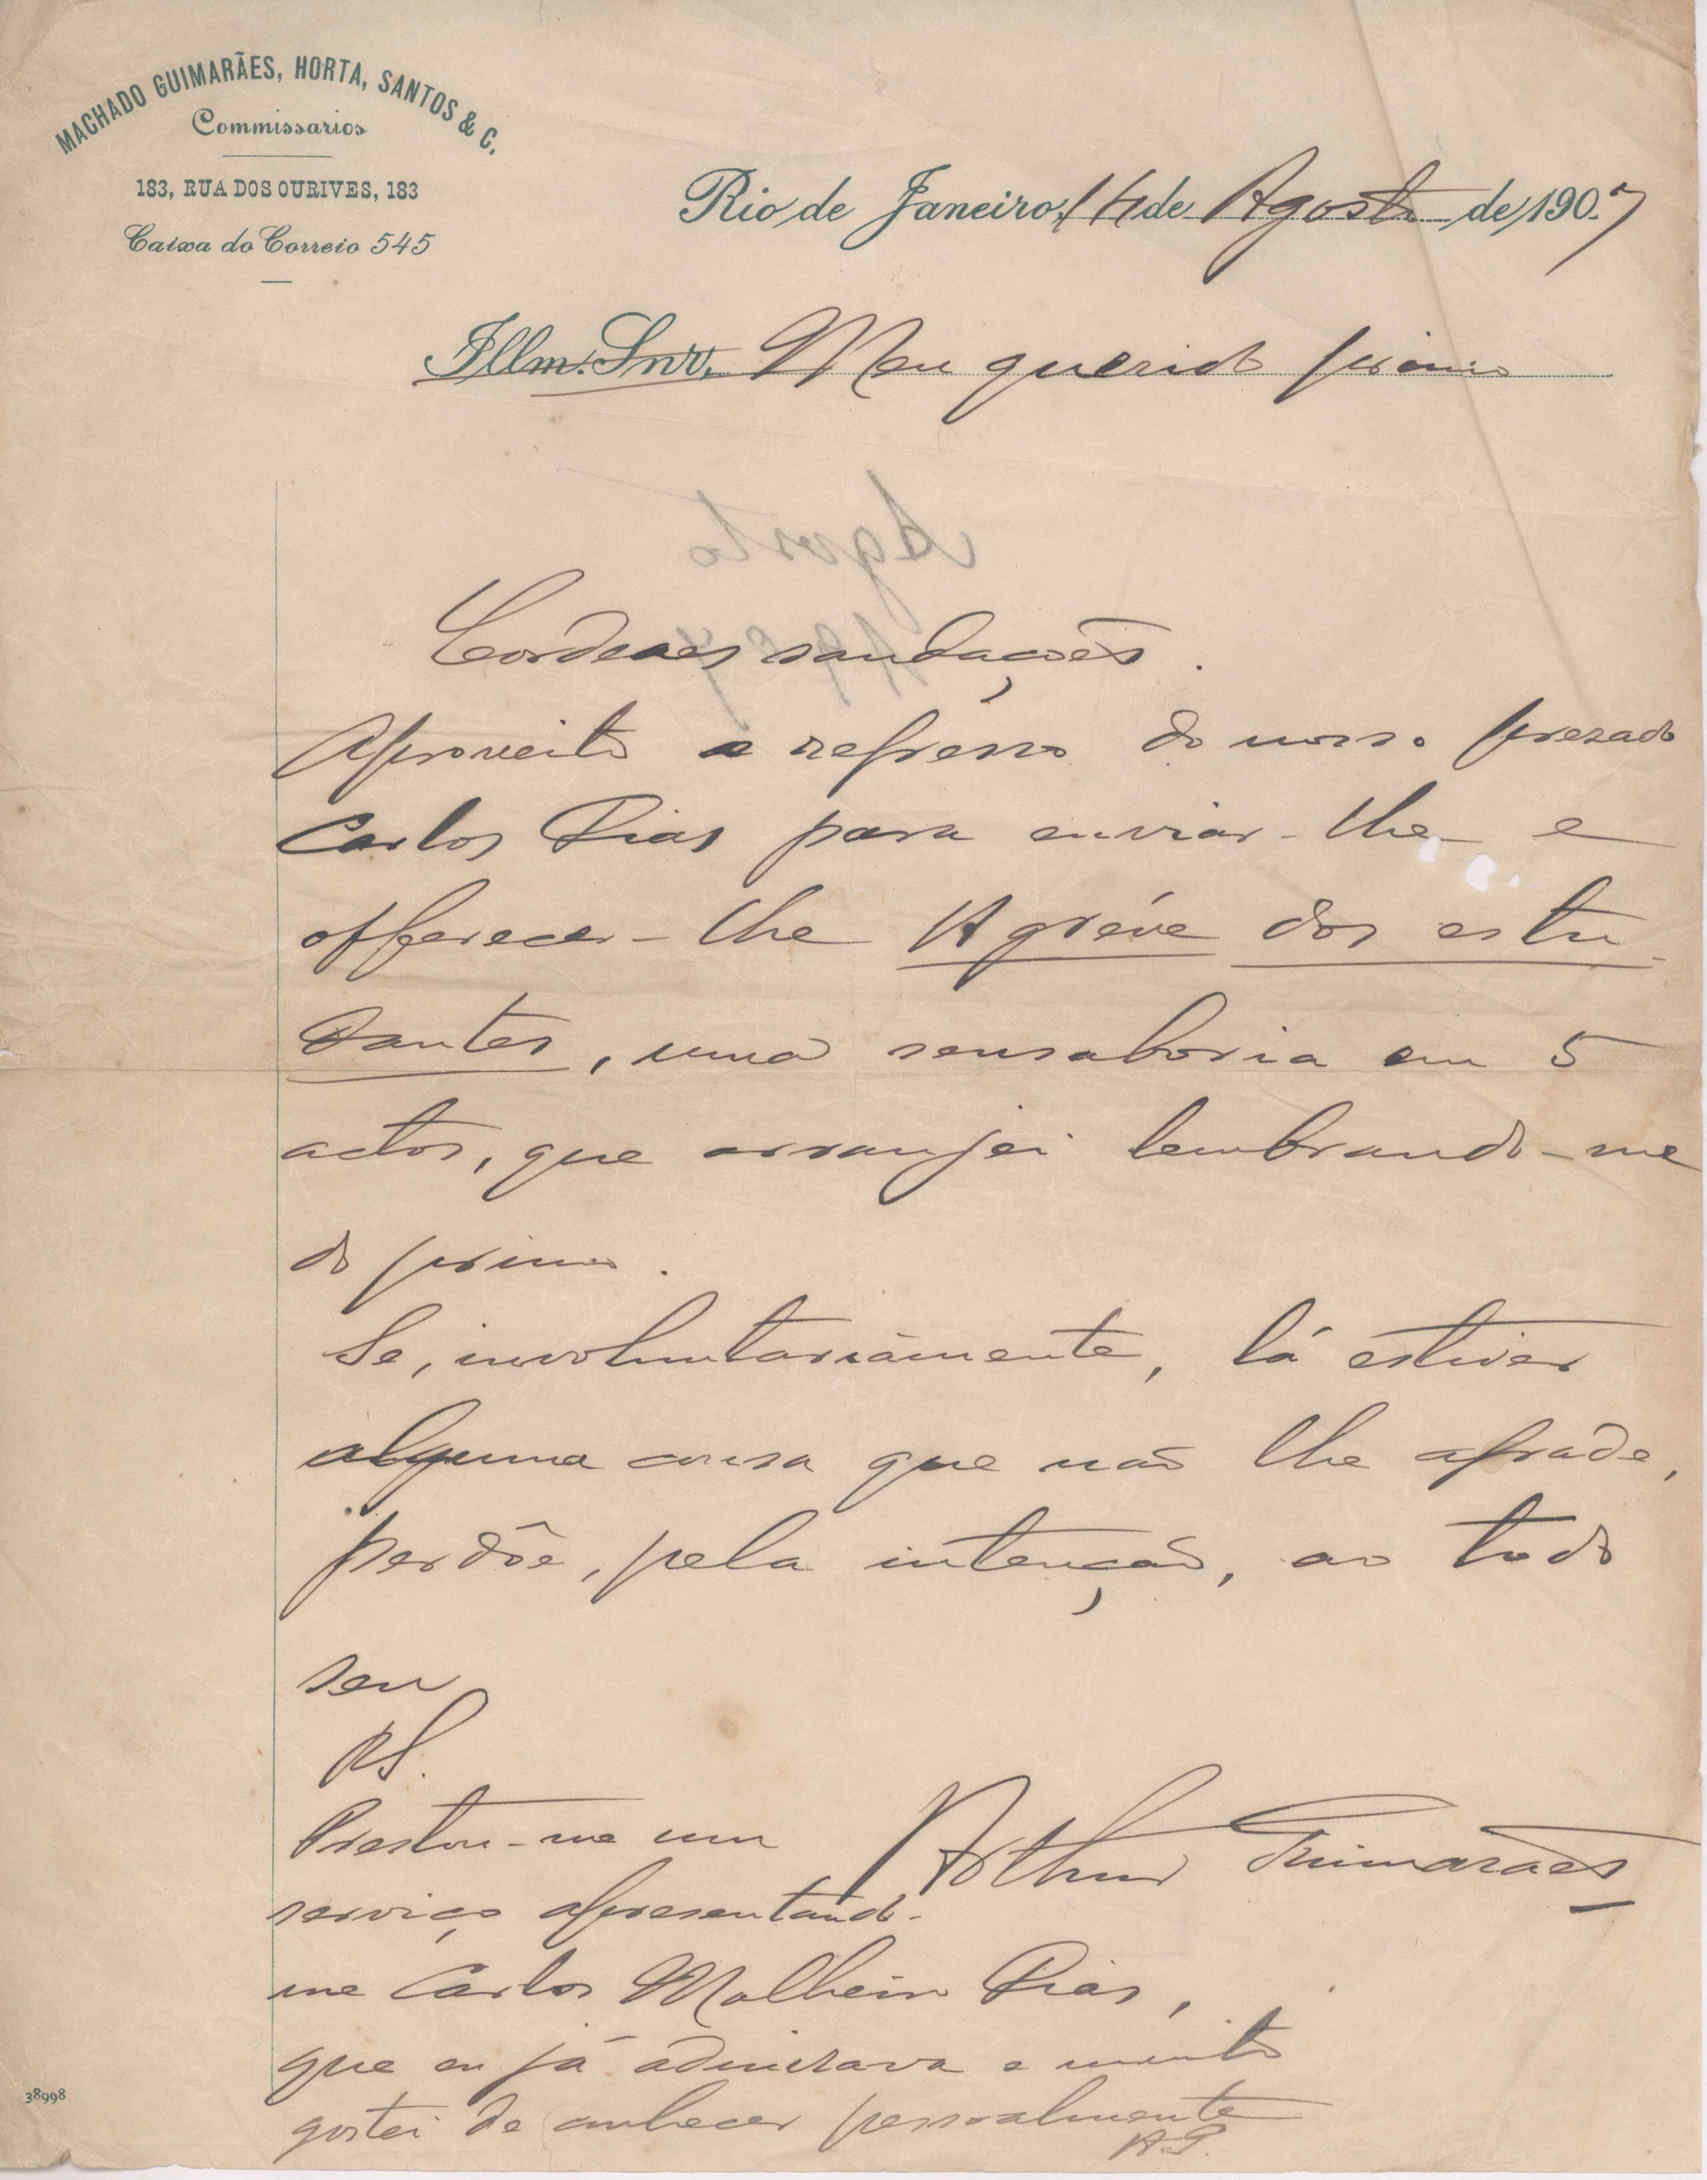 MACHADO GUIMARÃES, HORTA, SANTOS & C.
Commissarios
183, RUA DOS OURIVES, 183
Caixa do Correio 545
Rio de Janeiro, 14 de Agosto de 1907
Illm. Snr. Meu querido primo
Agosto
1907
Cordeaes saudações.
Aproveito o regresso do nosso prezado
Carlos Dias para enviar-lhe e
offerecer-lhe A gréve dos estu-
dantes, uma sensaboria em 5
actos, que arranjei lembrando-me
do primo.
Se, involuntariamente, lá estiver
alguma cousa que não lhe agrade,
perdôe, pela intenção, ao todo
seu
PS.
Arthur Guimarães
Prestou-me um
serviço apresentando-
me Carlos Malheiro Dias,
que eu já admirava e muito
gostei de conhecer pessoalmente
A.G.
38998